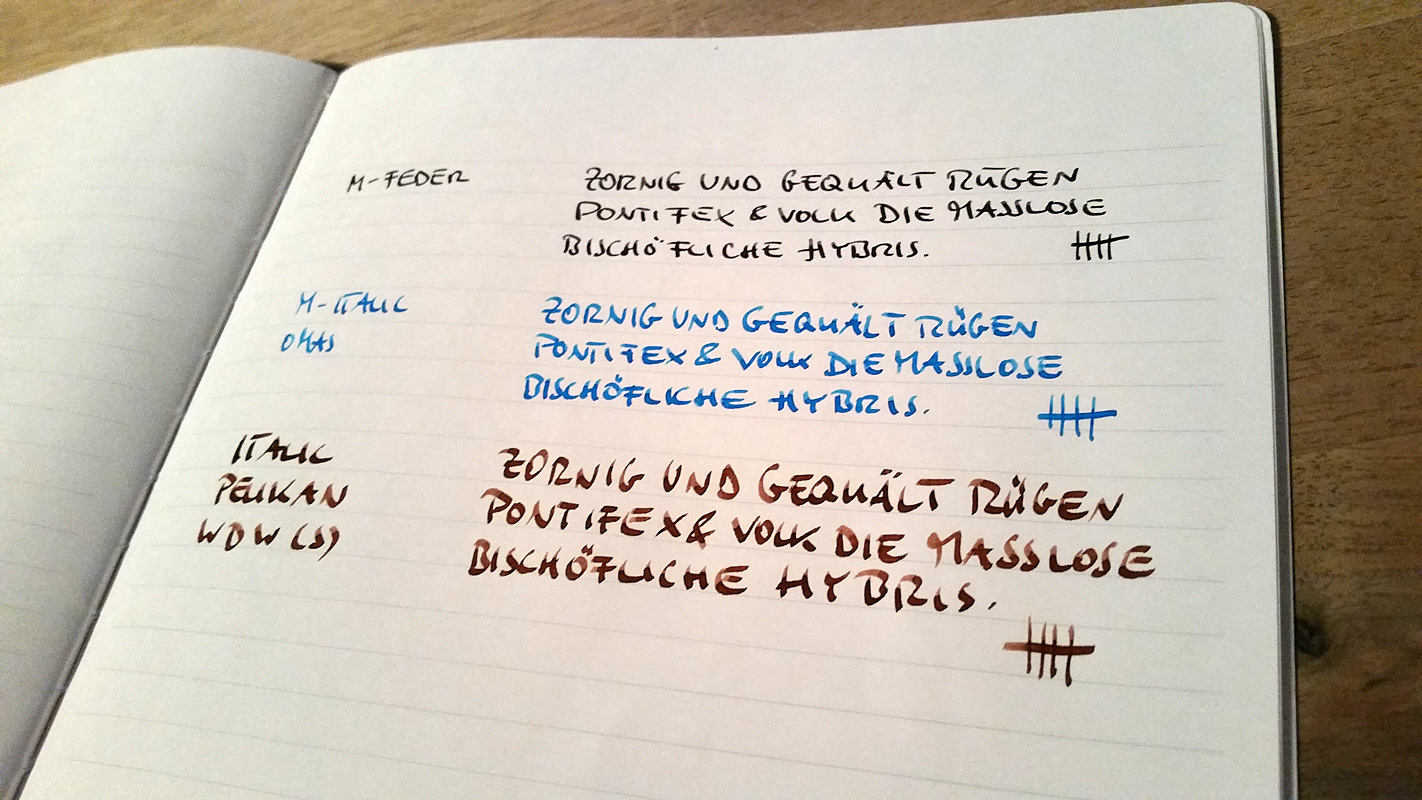 M-FEDER ZORNIG UND GEQUÄLT RÜGEN
PONTIFEX & VOLK DIE MASSLOSE
BISCHÖFLICHE HYBRIS.
M-ITALIC ZORNIG UND GEQUÄLT RÜGEN
OMAS PONTIFEX & VOLK DIE MASSLOSE
BISCHÖFLICHE HYBRIS.
ITALIC ZORNIG UND GEQUÄLT RÜGEN
PELIKAN PONTIFEX & VOLK DIE MASSLOSE
WDW (S) BISCHÖFLICHE HYBRIS.